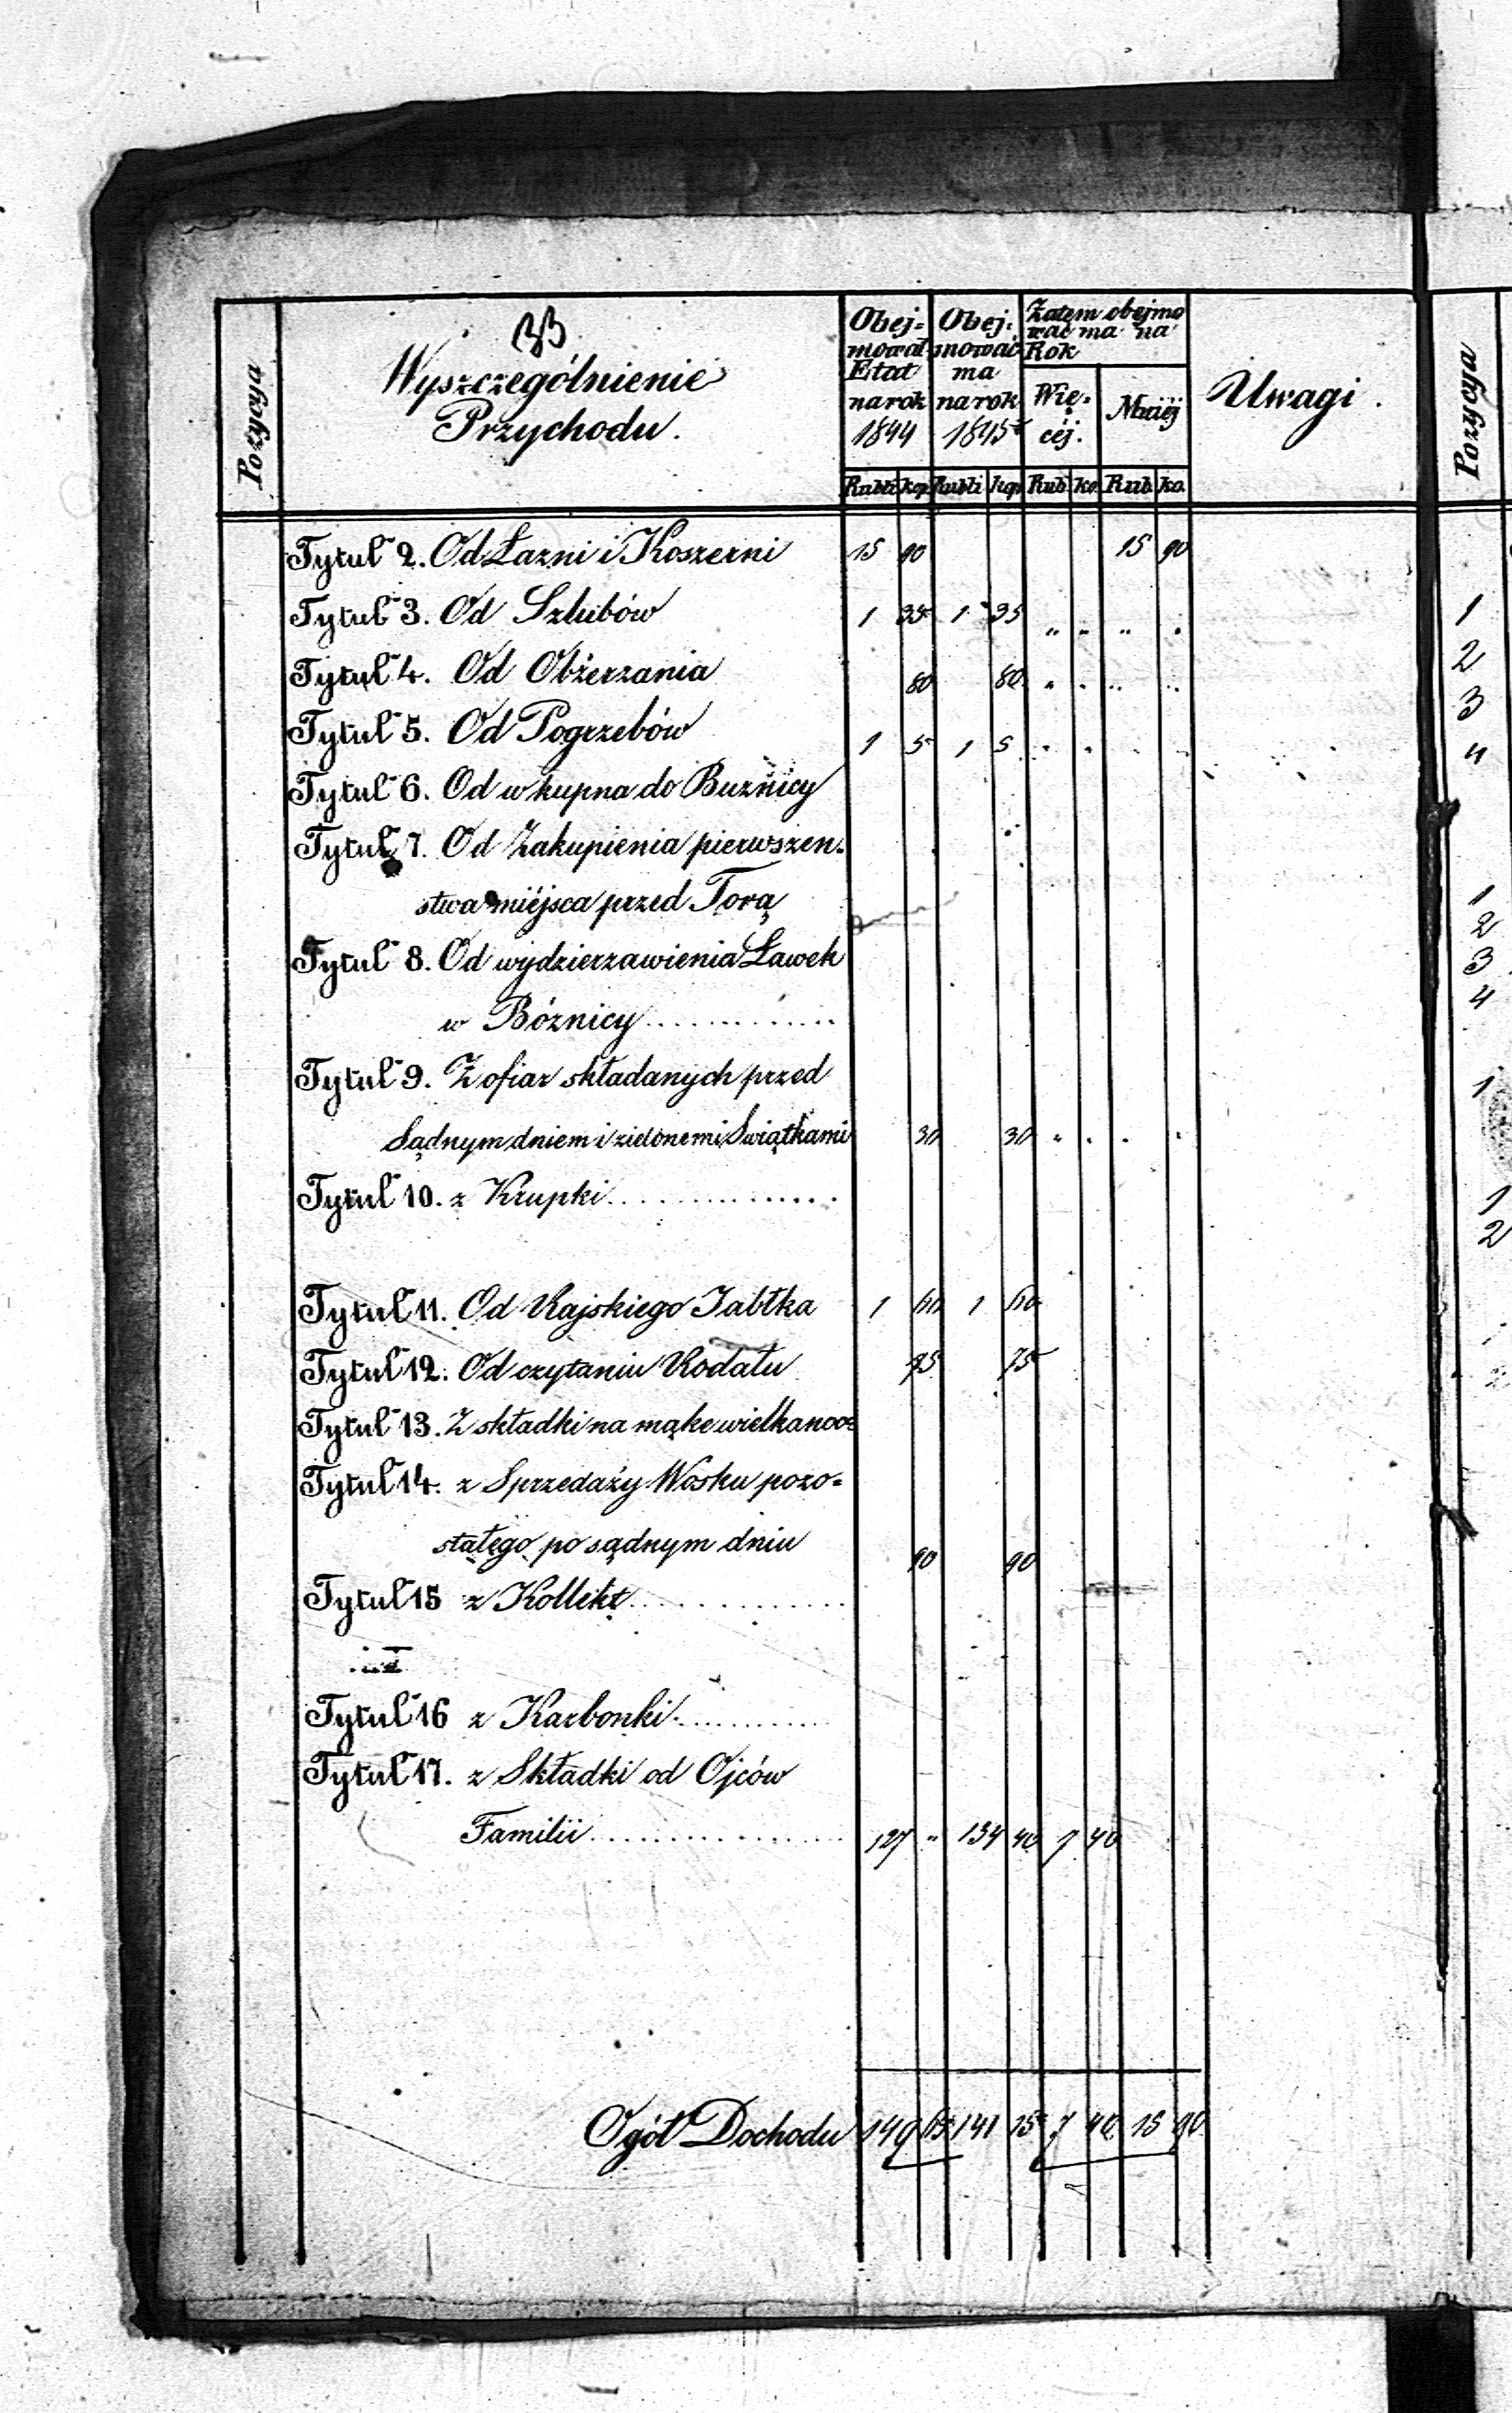 33
Pozycya
Wyszczególnienie
Przychodu.
Obej=
mował
Etat
na rok
1844
Obej=
mować
ma
na rok
1845
Zatem obejmo
wać ma na
Rok
Wię=
céj.
Mniéj
Uwagi.
Rubli kop Rubli kop Rub ko. Rub ko.
Tytuł 2. Od Łazni i Koszerni 15 90 15 90
Tytuł 3. Od Szlubów 1 35 1 35 " " " "
Tytuł 4. Od Obżerzania 80 80 " " " "
Tytuł 5. Od Pogrzebów 1 5 1 5 " " " "
Tytuł 6. Od wkupna do Buznicy
Tytuł 7. Od Zakupienia pierwszen=
stwa miéjsca przed Torą
Tytuł 8. Od wydzierzawienia Ławek
w Bóznicy..............
Tytuł 9. Z ofiar składanych przed
Sądnym dniem i zielonemi Swiątkami 30 30 " " " "
Tytuł 10. z Krupki..............
Tytuł 11. Od Rajskiego Jabłka 1 60 1 60
Tytuł 12. Od czytaniu Rodału 75 75
Tytuł 13. Z składki na mąke wielkanoc=
Tytuł 14. z Sprzedaży Wosku pozo=
stałego po sądnym dniu 90 90
Tytuł 15 z Kollekt..............
Tytuł 16 z Karbonki..............
Tytuł 17. z Składki od Ojców
Familii.............. 127 " 134 40 7 40
Ogół Dochodu 149 65 141 15 7 40 15 90
Pozycya
1
2
3
4
1
2
3
4
1
1
2